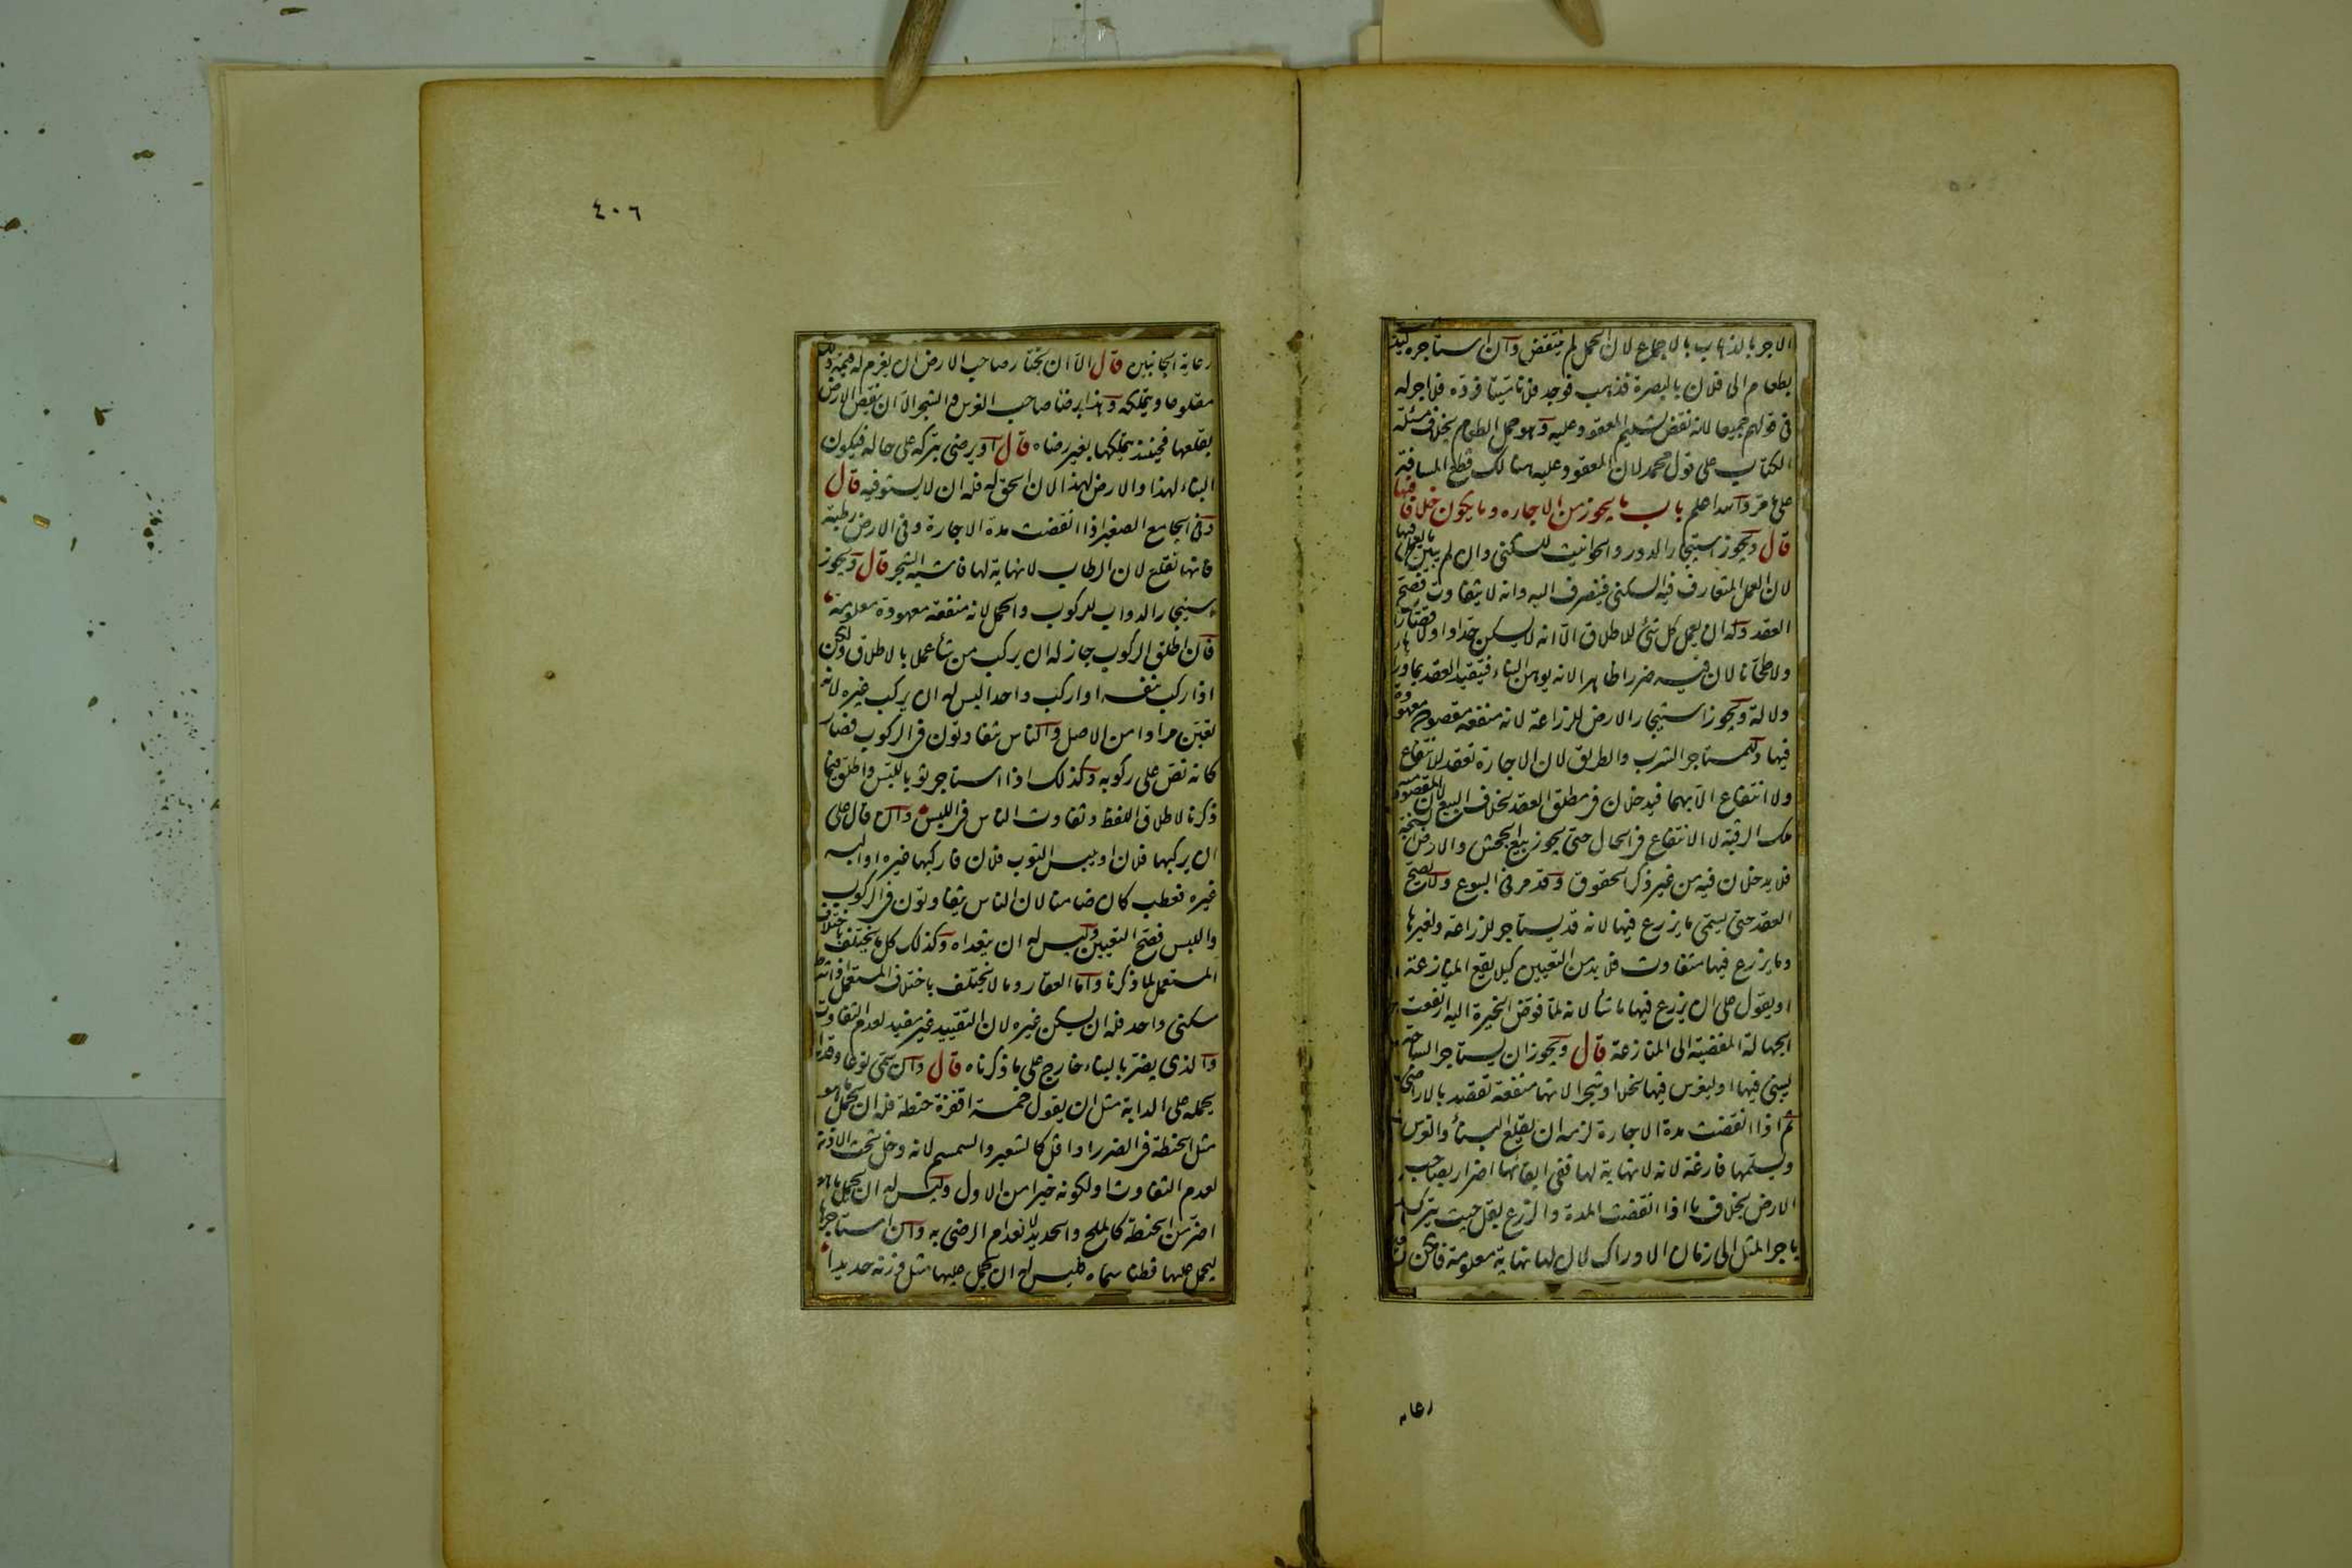 الاجر بالذهاب بالاجماع لان الحمل لم ينتقض وان استاجره ليذهب
بطعام الى فلان بالبصرة فذهب فوجد فلانا ميتا فرده فلا اجر له
فى قولهم جميعا لانه نقض تسليم المعقود عليه وهو حمل الطعام بخلاف مسئلة
الكتاب على قول محمد لان المعقود عليه هنالك قطع المسافة
على ما مر والله اعلم باب ما يجوز من الاجاره وما يكون خلافا فيها
قال ويجوز استيجار الدور والحوانيت للسكنى وان لم يبين ما يعمل فيها
لان العمل المتعارف فيه السكنى فينصرف اليه وانه لا يتفاوت فصح
العقد وله ان يعمل كل شئ للاطلاق الا انه لا يسكن حدادا ولا قصارا
ولا طحانا لان فيه ضررا ظاهرا لانه يوهن البناء فيتقيد العقد بما وراءها
دلالة ويجوز استيجار الارض للزراعة لانه منفعة مقصودة معهودة
فيها وللمستاجر الشرب والطريق لان الاجارة تعقد للانتفاع
ولا انتفاع الا بهما فيدخلان فى مطلق العقد بخلاف البيع لان المقصود منه
ملك الرقبة لا الانتفاع فى الحال حتى يجوز بيع الجحش والارض السبخة
فلا يدخلان فيه من غير ذكر الحقوق وقد مر فى البيوع ولا يصح
العقد حتى يسمى ما يزرع فيها لانه قد يستاجر للزراعة ولغيرها
وما يزرع فيها متفاوت فلا بد من التعيين كيلا يقع المنازعة
او يقول على ان يزرع فيها ما شأ لانه لما فوض الخيرة اليه ارتفعت
الجهالة المفضية الى المنازعة قال ويجوز ان يستاجر الساحة
ليبنى فيها او ليغرس فيها نخلا او شجرا لانها منفعة تقصد بالاراضى
ثم اذا انقضت مدة الاجارة لزمه ان يقلع البنأ والغرس
ويسلمها فارغة لانه لا نهاية لها ففى ابقائها اضرار بصاحب
الارض بخلاف ما اذا انقضت المدة والزرع بقل حيث يترك
باجر المثل الى زمان الادراك لان لها نهاية معلومة فامكن
رعاية
٤٠٦
رعاية الجانبين قال الا ان يختار صاحب الارض ان يغرم له قيمة ذلك
مقلوعا ويتملكه وهذا برضا صاحب الغرس والشجر الا ان تنقص الارض
بقلعها فحينئذ يتملكها بغير رضاه قال او يرضى بتركه على حاله فيكون
البناء لهذا والارض لهذا لان الحق له فله ان لا يستوفيه قال
وفى الجامع الصغير اذا انقضت مدة الاجارة وفى الارض رطبة
فانها تقلع لان الرطاب لا نهاية لها فاشبه الشجر قال ويجوز
استيجار الدواب للركوب والحمل لانه منفعة معهودة معلومة
فان اطلق الركوب جاز له ان يركب من شأ عملا بالاطلاق ولكن
اذا ركب بنفسه او اركب واحدا ليس له ان يركب غيره لانه
تعين مرادا من الاصل والناس متفاوتون فى الركوب فصار
كانه نص على ركوبه وكذلك اذا استاجر ثوبا للبس واطلق فيما
ذكرنا لاطلاق اللفظ وتفاوت الناس فى اللبس وان قال على
ان يركبها فلان او يلبس الثوب فلان فاركبها غيره او البسه
غيره فعطب كان ضامنا لان الناس يتفاوتون فى الركوب
واللبس فصح التعيين وليس له ان يتعداه وكذلك كل ما يختلف باختلاف
المستعمل لما ذكرنا واما العقار وما لا يختلف باختلاف المستعمل اذا شرط
سكنى واحد فله ان يسكن غيره لان التقييد غير مفيد لعدم التفاوت
والذى يضر بالبناء خارج على ما ذكرناه قال وان سمى نوعا وقدرا
يحمله على الدابة مثل ان يقول خمسة اقفزة حنطة فله ان يحمل ما هو
مثل الحنطة فى الضرر او اقل كالشعير والسمسم لانه دخل تحت الاذن
لعدم التفاوت او لكونه خيرا من الاول وليس له ان يحمل ما هو
اضر من الحنطة كالملح والحديد لانعدام الرضى به وان استاجرها
ليحمل عليها قطنا سماه فليس له ان يحمل عليها مثل وزنه حديدا